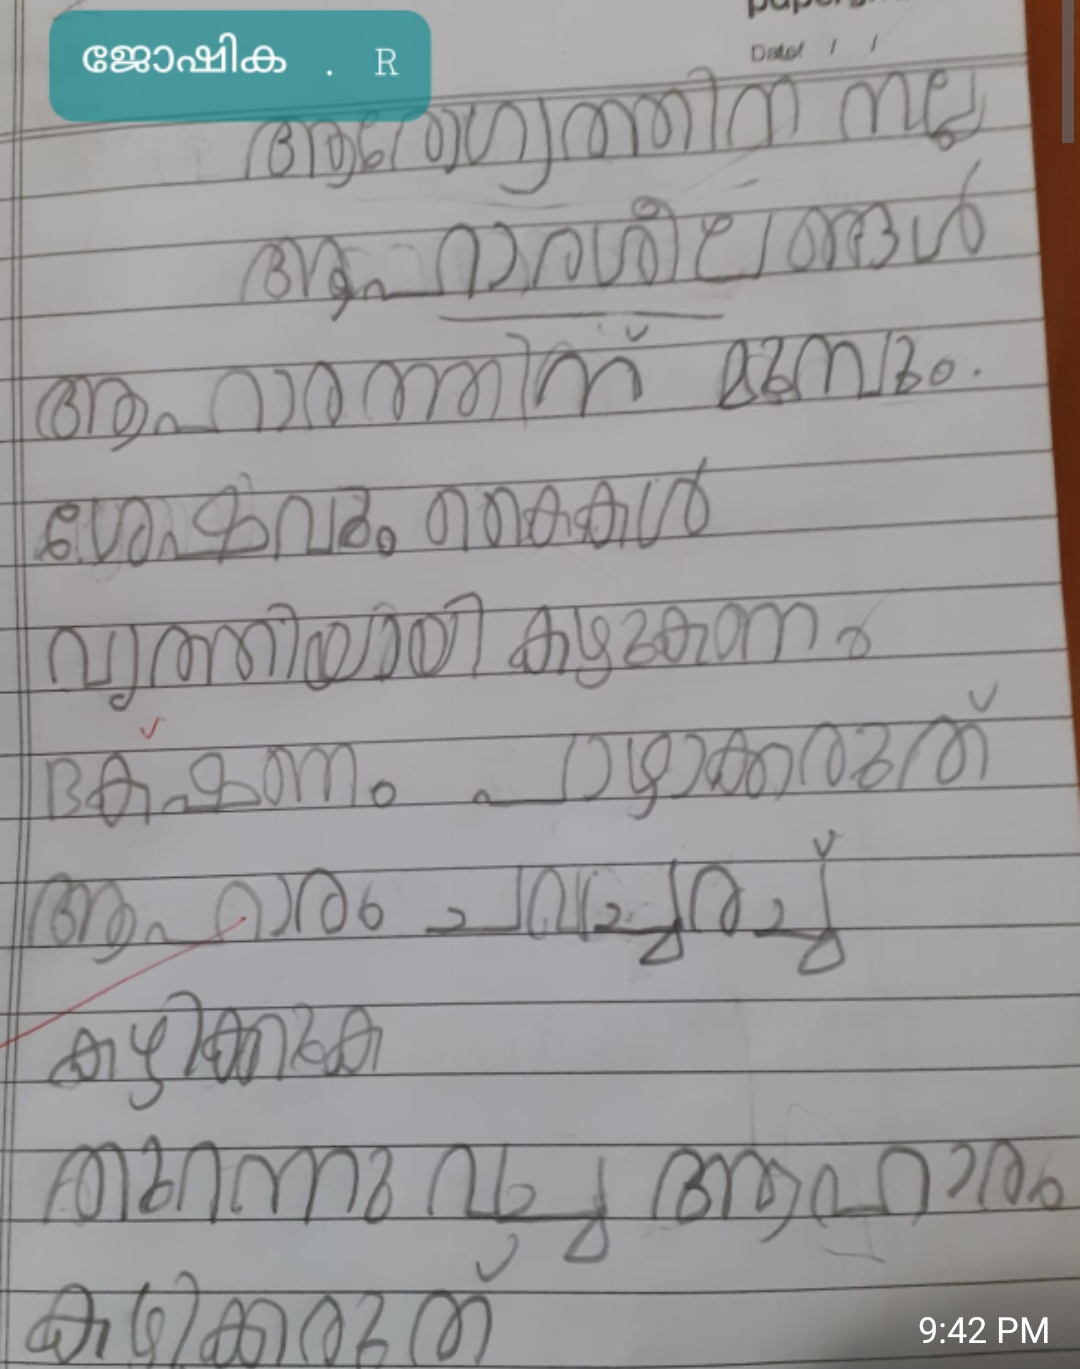 ജോഷിക . R
Date: / /
ആരോഗ്യത്തിന നല്ല
ആഹാരശീലങ്ങൾ
ആഹാരത്തിന് മുമ്പും.
ശേഷവും കൈകൾ
വൃത്തിയായി കഴുകണം
ഭക്ഷണം പാഴാക്കരുത്
ആഹാരം ചവച്ചരച്ച്
കഴിക്കുക
തുറന്നു വച്ച ആഹാരം
കഴിക്കരുത്
9:42 PM